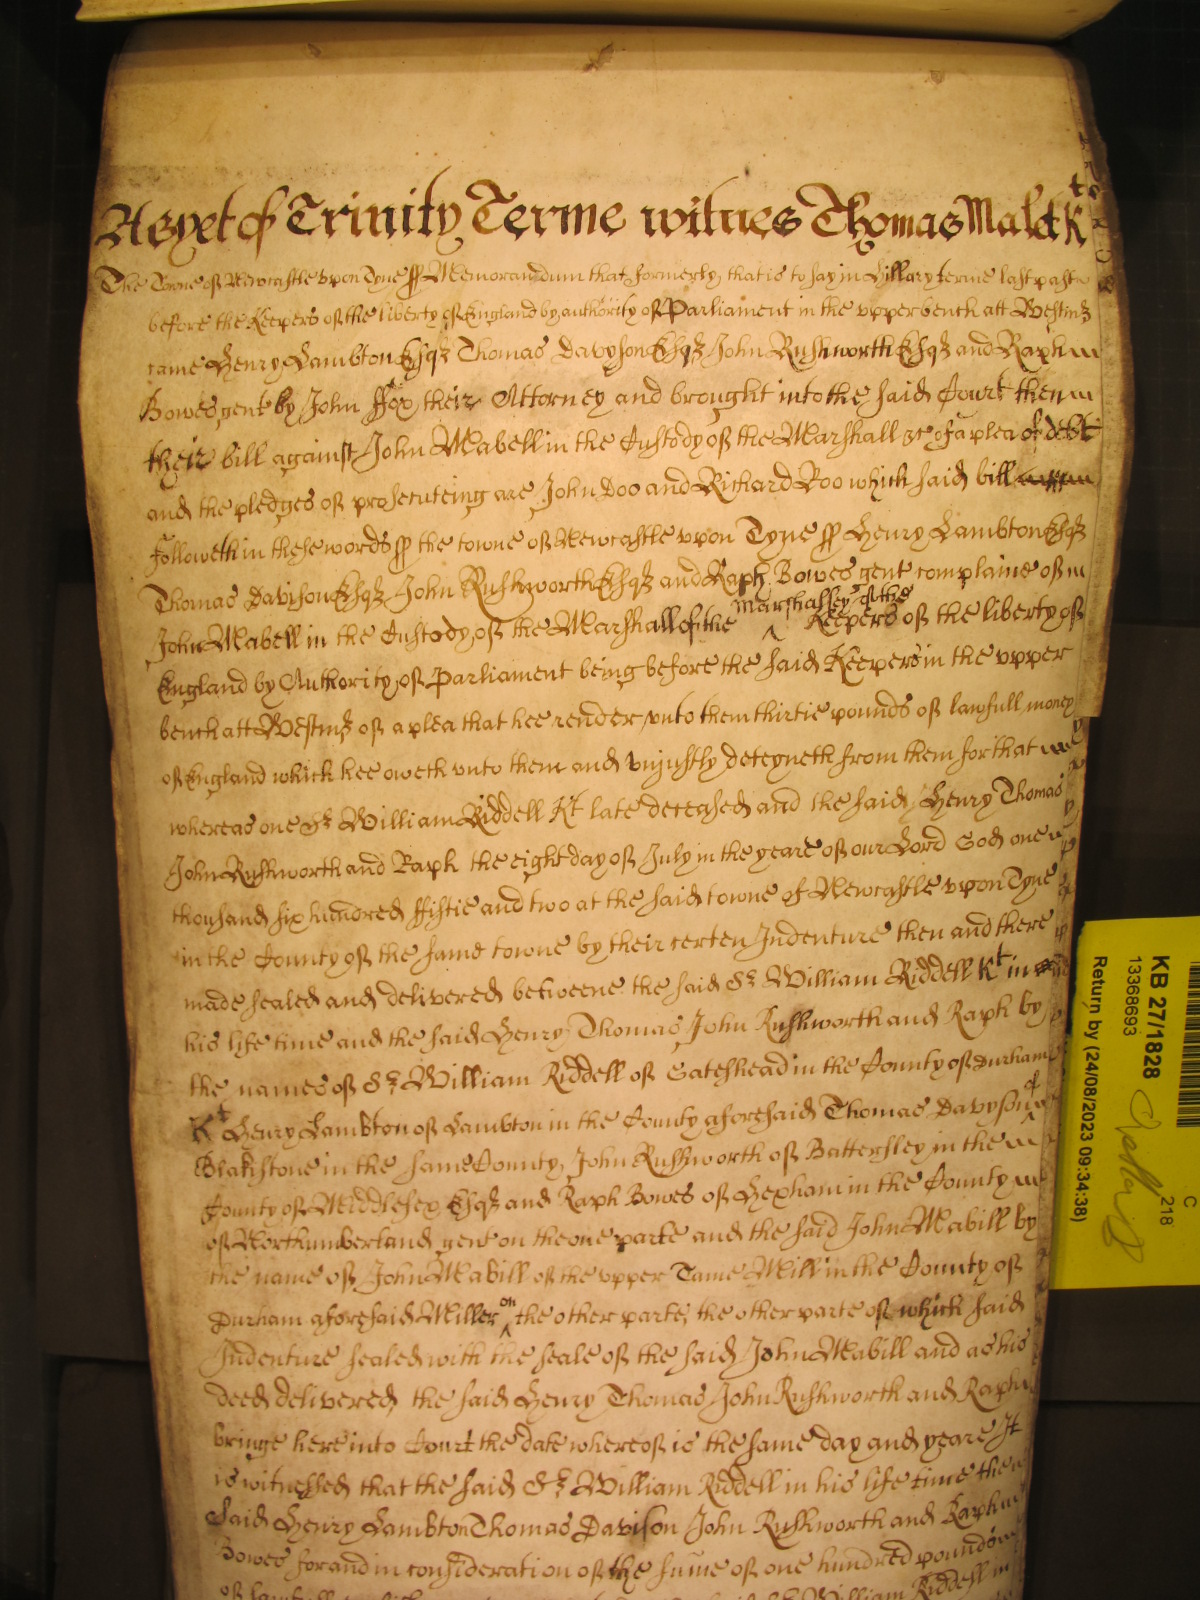 As yet of Trinity Terme witnes Thomas Malet Kt
The Towne of Newcastle upon Tyne ss Memorandum that formerly that is to say in Hillary terme last past
before the Keepers of the liberty of England by authority of Parliament in the upper bench att Westmr
came Henry Lambton Esqr Thomas Davyson Esqr John Rushworth Esqr and Raph
Bowes gent by John ffox their Attorney and brought into the said Court then
their bill against John Mabell in the Custody of the Marshall &c of a plea of debt
and the pledges of prosecuteing are John Doo and Richard Roo which said bill
followeth in these words ss the towne of Newcastle upon Tyne ss Henry Lambton Esqr
Thomas Davison Esqr John Rushworth Esqr and Raph Bowes gent complaine of
John Mabell in the Custody of the Marshall of the Marshalsey of the Keepers of the liberty of
England by Authority of Parliament being before the said Keepers in the upper
bench att Westmr of a plea that hee render unto them thirtie pounds of lawfull money
of England which hee oweth unto them and unjustly deteyneth from them for that
whereas one Sr William Riddell Kt late deceased and the said Henry Thomas
John Rushworth and Raph the eight day of July in the yeare of our Lord God one
thousand six hundred fiftie and two at the said towne of Newcastle upon Tyne
in the County of the same towne by their certen Indenture then and there
made sealed and delivered betweene the said Sr William Riddell Kt in
his life time and the said Henry Thomas John Rushworth and Raph by
the names of Sr William Riddell of Gateshead in the County of Durham
Kt Henry Lambton of Lambton in the County aforesaid Thomas Davyson of
Blakistone in the same County, John Rushworth of Battersley in the
County of Middlesex Esqr and Raph Bowes of Hexham in the County
of Northumberland gent on the one parte and the said John Mabill by
the name of John Mabill of the upper Tame Mill in the County of
Durham aforesaid Miller on the other parte, the other parte of which said
Indenture sealed with the seale of the said John Mabill and as his
deed delivered, the said Henry Thomas John Rushworth and Raph
bringe here into Court the date whereof is the same day and yeare It
is witnessed that the said Sr William Riddell in his life time the
said Henry Lambton Thomas Davison John Rushworth and Raph
Bowes for and in consideration of the summe of one hundred pounds
of lawfull William Riddell in
KB 27/1828
13368693
C
218
Return by (24/08/2023 09:34:38)